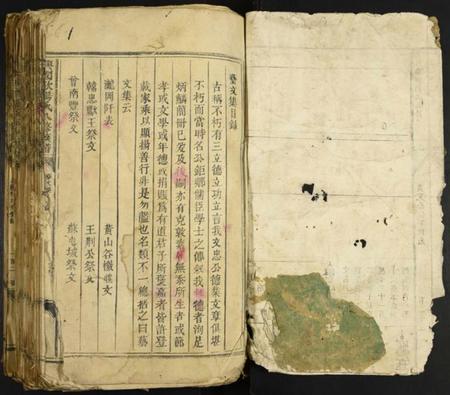 藝文集目錄
古稱不朽有三立德立功立言我文忠公德業文章俱堪
不朽而當時名公鉅卿儒臣學士之傳叙我祖德者洵足
炳麟簡冊已爰及後嗣亦有克敦無忝所生者或節
孝或文學或年德或捐賑為有道君子所褒嘉者皆許登
載家乘以顯揚善行并是勿濫也名類不一總括之曰藝
文集云
瀧岡阡表
黃山谷
韓忠獻王祭文
王荆公祭文
曾南豐祭文
蘇東坡祭文